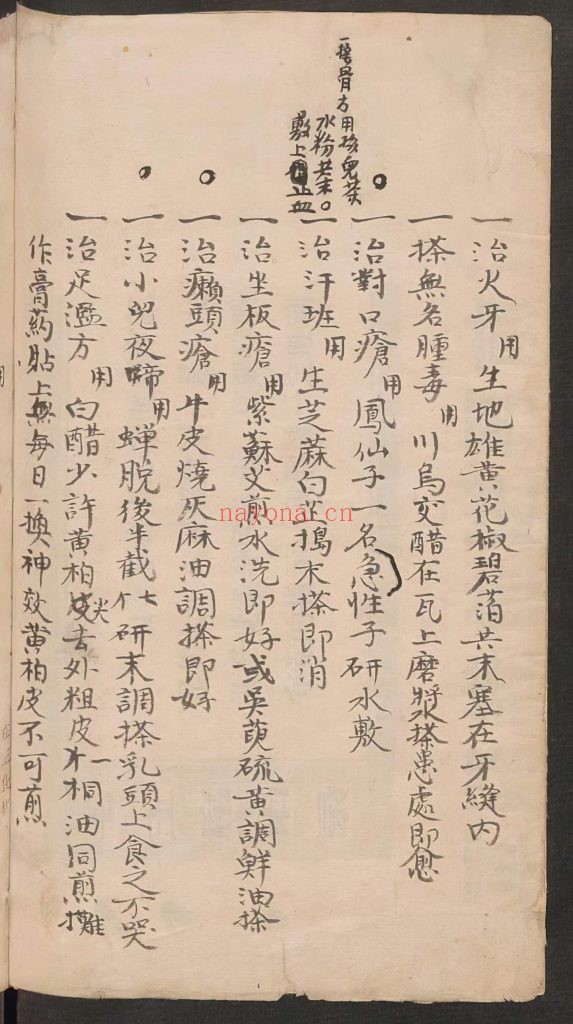 一接骨方用孩兒茶
水粉共末
敷上止血
一治火牙用生地雄黄花椒碧蒲共末塞在牙縫内
一搽無名腫毒用川烏交醋在瓦上磨將水搽患處即愈
一治對口瘡用鳳仙子一名急性子研水敷
一治汗班用生芝蔴白芷搗末搽即消
一治坐板瘡用紫蘇艾煎水洗即好或吳萸硫黄調鮮油搽
一治癩頭瘡用牛皮燒灰麻油調搽即好
一治小兒夜啼用蟬脱後半截七个研末調搽乳頭上食之不哭
一治足濫方用白醋少許黄柏皮尖去外粗皮一片桐油同煎攤
作膏药貼上每日一換神效黄柏皮不可煎
nayonai.cn